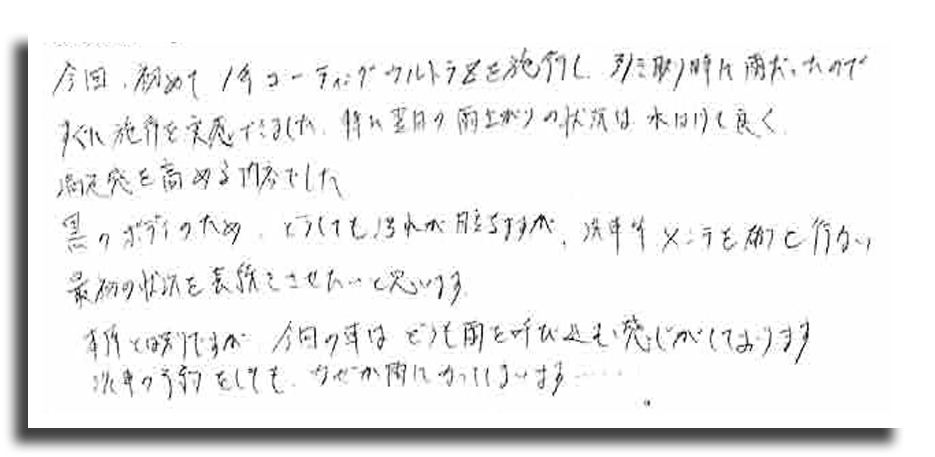 今回、初めて1年コーティングウルトラZを施行し、引き取り時に雨だったので
すぐに施行を実感できました。特に翌日の雨上がりの状況は水はけも良く、
満足感を高める内容でした
黒のボディのため、どうしても汚れが目立ちますが、洗車やメンテを 行ない
最初の状況を 続させたいと思います。
本件とは別ですが、今回の車はどうも雨を呼び込む感じがしております
洗車の予約をしても、なぜか雨になってしまいます……。